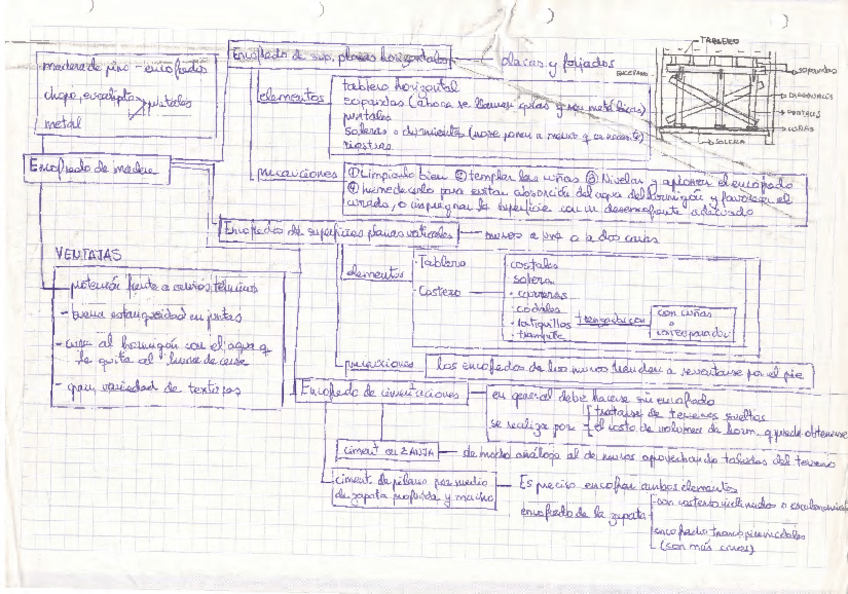 Encofrado de sup. planas horizontales — placas y forjados
madera de pino - encofrados
chopo, eucalipto → puntales
metal
elementos
tablero horizontal
sopandas (ahora se llaman guías y son metálicas)
puntales
soleras o durmientes (no se ponen a menos q se necesite)
riostras
TABLERO
ENCOFRADO
SOPANDAS
DIAGONALES
PUNTALES
CUÑAS
SOLERA
Encofrado de madera
precauciones
① Limpiarlo bien ② templar las cuñas ③ Nivelar y aplomar el encofrado
④ humedecerlo para evitar absorción del agua del hormigón y favorecer el
curado, o impregnar la superficie con un desencofrante adecuado
Encofrados de superficies planas verticales — muros a una o a dos caras
elementos
- Tablero
- Costero
costales
solera
- carreras
- codales
- latiquillos
- tramputs
con cuñas
o
VENTAJAS
- protección frente a cambios térmicos
- buena estanqueidad en juntas
- curar al hormigón con el agua q
le quita al
- gran variedad de texturas
precauciones
los encofrados de los muros tienden a reventarse por el pie
Encofrado de cimentaciones
en general debe hacerse sin encofrado
se realiza por
tratarse de terrenos sueltos
el costo de volumen de horm. q puede obtenerse
ciment en ZANJA — de modo análogo al de muros aprovechando taludes del terreno
ciment de pilares por medio
de zapata profunda y macho
Es preciso encofrar ambos elementos
encofrado de la zapata
con costeros inclinados o escalonamientos
encofrados troncopiramidales
(son más caros)